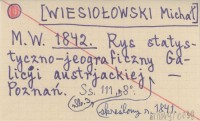 [WIESIOŁOWSKI Michał]
M.W. 1842. Rys statys-
tyczno-jeograficzny Ga-
licyi austrjackiej —
Poznań. Ss. 111, 8°.
określony r. 1841.